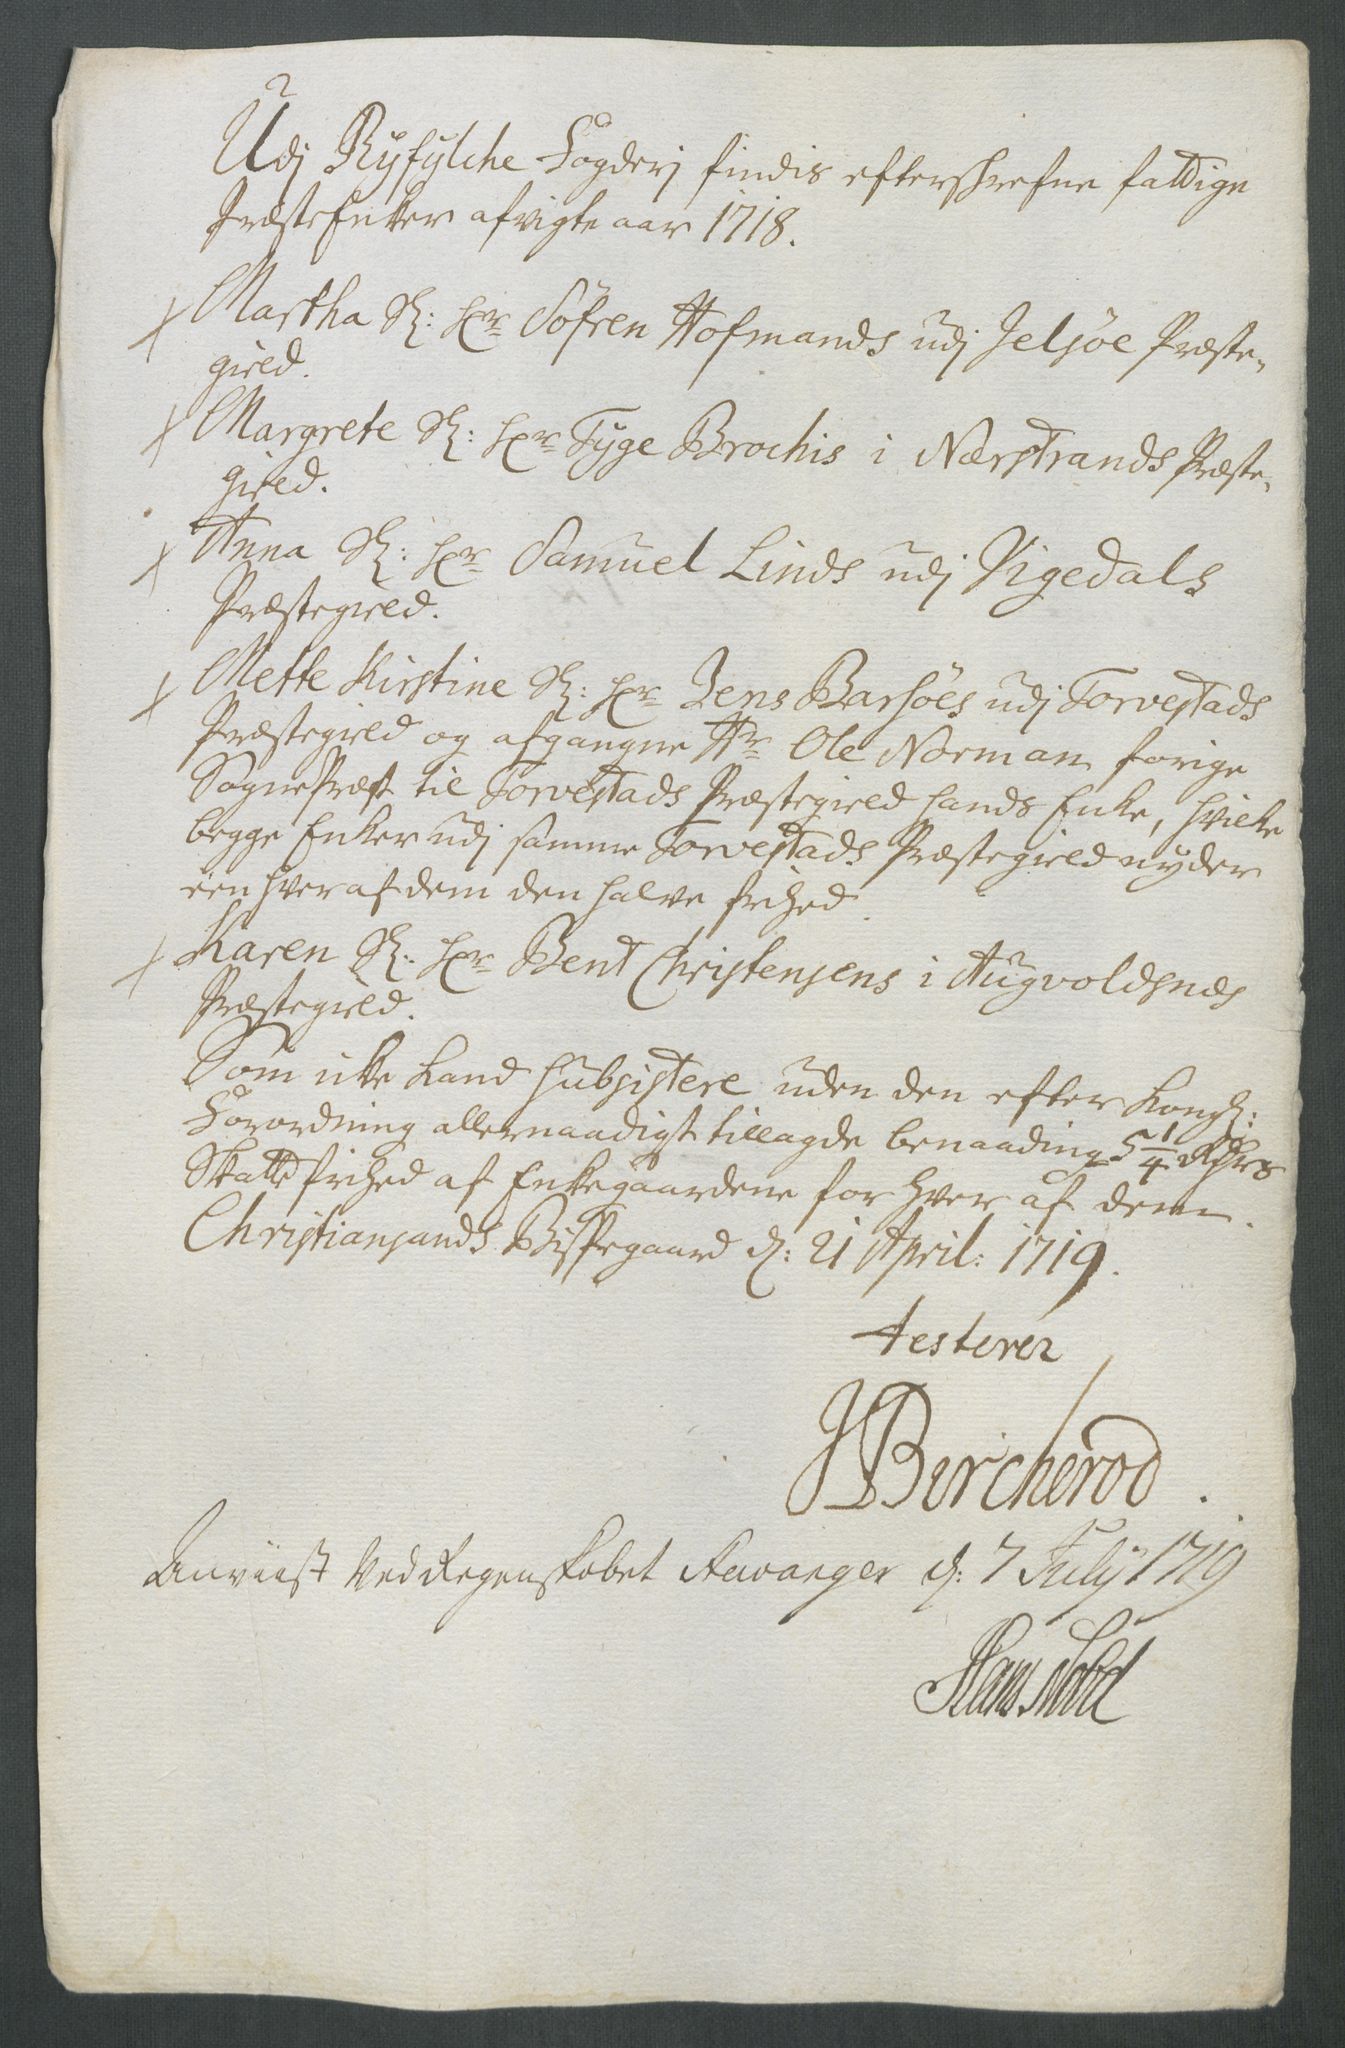 Udj Ryfylche Fogderj findis efterskrefne fattige
PræsteEnker afvigte aar 1718.
Martha Sl: Hr Söfren Hofmands udj Jelsöe Præste-
gield.
Margrete Sl: Hr Tyge Brochis i Nærstrands Præste-
gield.
Anna Sl: Hr Samuel Linds udj Vigedals
Præstegield.
Mette Kirstine Sl: Hr Jens Barsöes udj Torvestads
Præstegield og afgangne Hr Ole Norman forige
SognePræst til Torvestads Præstegield hands Enke, hvilke
begge Enker udj samme Torvestads Præstegield nyder
een hver af dem den halve frihed.
Karen Sl: Hr Bent Christensens i Augvoldsnæs
Præstegield.
Som icke kand subsistere uden den efter Kongl:
Forordning allernaadigst tillagde benaading 5 1/4 Rdlrs
Skatte frihed af Enkegaardene for hver af dem.
Christiansands Bispegaard d: 21 April: 1719.
testerer
JBircherod.
Anviist Ved Regenskabet Stavanger d: 7 July 1719
Hans